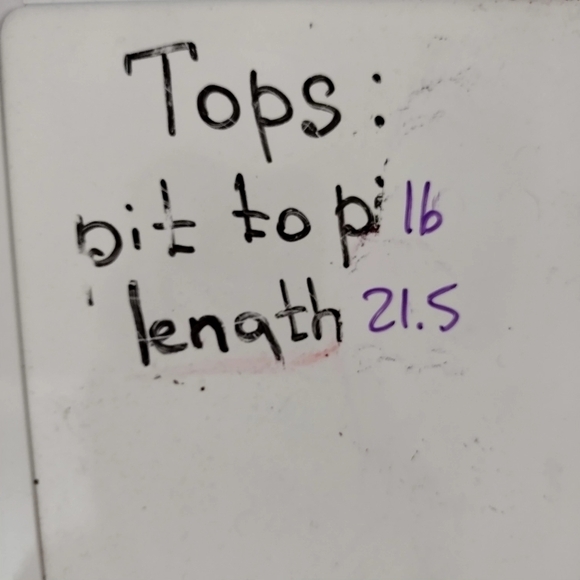 Tops:
pit to pi 16
length 21.5